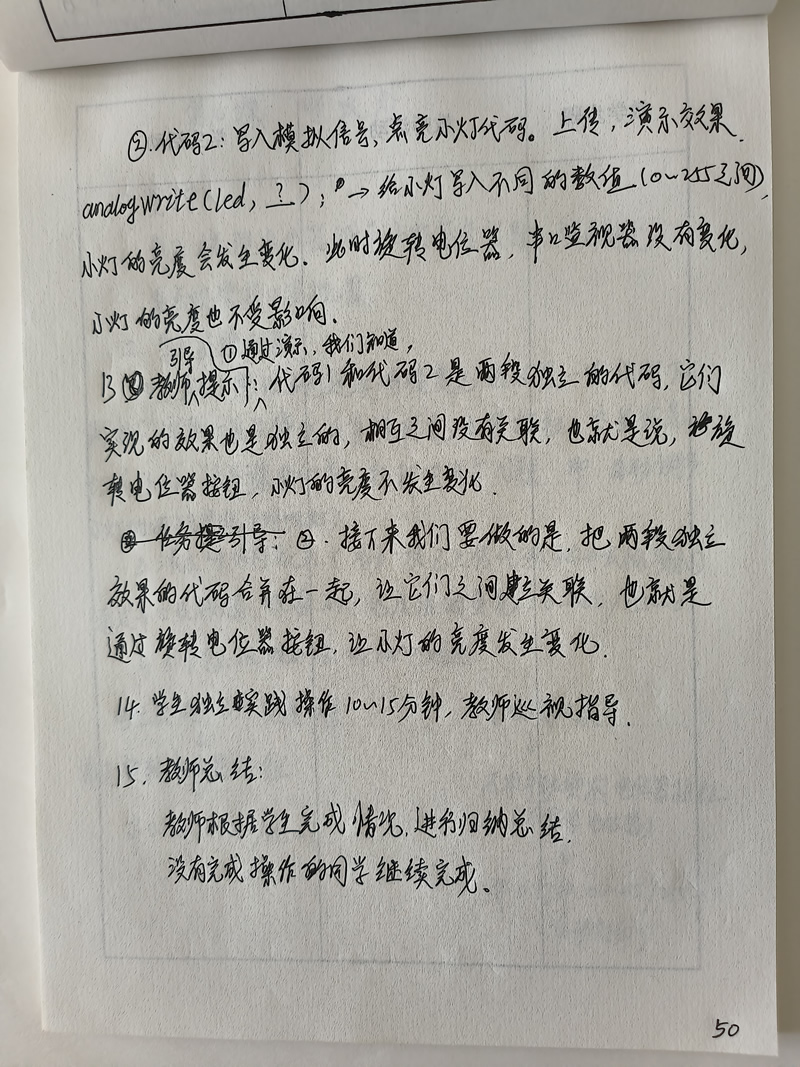 ②.代码2：写入模拟信号，点亮小灯代码。上传，演示效果.
analogwrite(led, ?); → 给小灯写入不同的数值(0~255之间),
小灯的亮度会发生变化. 此时旋转电位器，串口监视器没有变化，
小灯的亮度也不受影响.
引导 ①通过演示，我们知道，
13 教师提示：代码1和代码2是两段独立的代码，它们
实现的效果也是独立的，相互之间没有关联，也就是说，旋
转电位器按钮，小灯的亮度不发生变化.
任务提引导：②.接下来我们要做的是，把两段独立
效果的代码合并在一起，让它们之间建立关联，也就是
通过旋转电位器按钮，让小灯的亮度发生变化.
14. 学生独立实践操作10~15分钟，教师巡视指导.
15. 教师总结：
教师根据学生完成情况，进行归纳总结.
没有完成操作的同学继续完成。
50